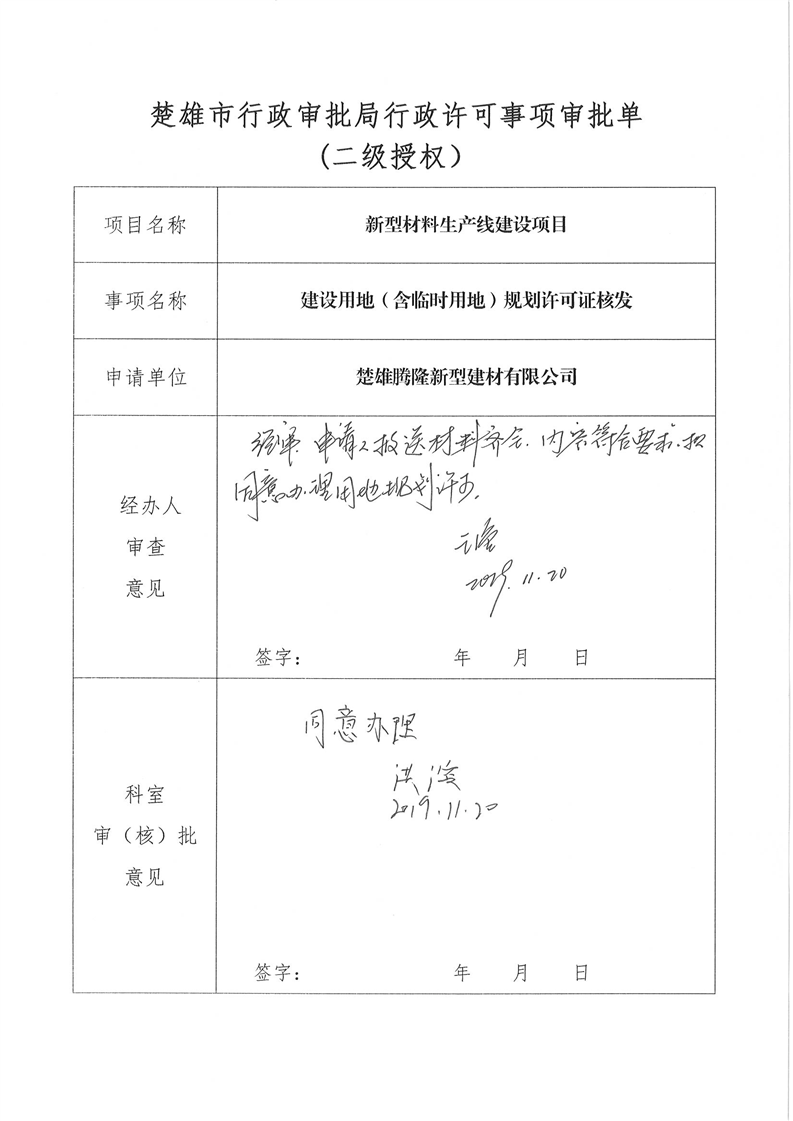 楚雄市行政审批局行政许可事项审批单
(二级授权)
项目名称
新型材料生产线建设项目
事项名称
建设用地（含临时用地）规划许可证核发
申请单位
楚雄腾隆新型建材有限公司
经办人
审查
意见
经审,申请人报送材料齐全,内容符合要求,拟
同意办理用地规划许可。
2019.11.20
签字： 年 月 日
科室
审（核）批
意见
同意办理
洪
2019.11.20
签字： 年 月 日